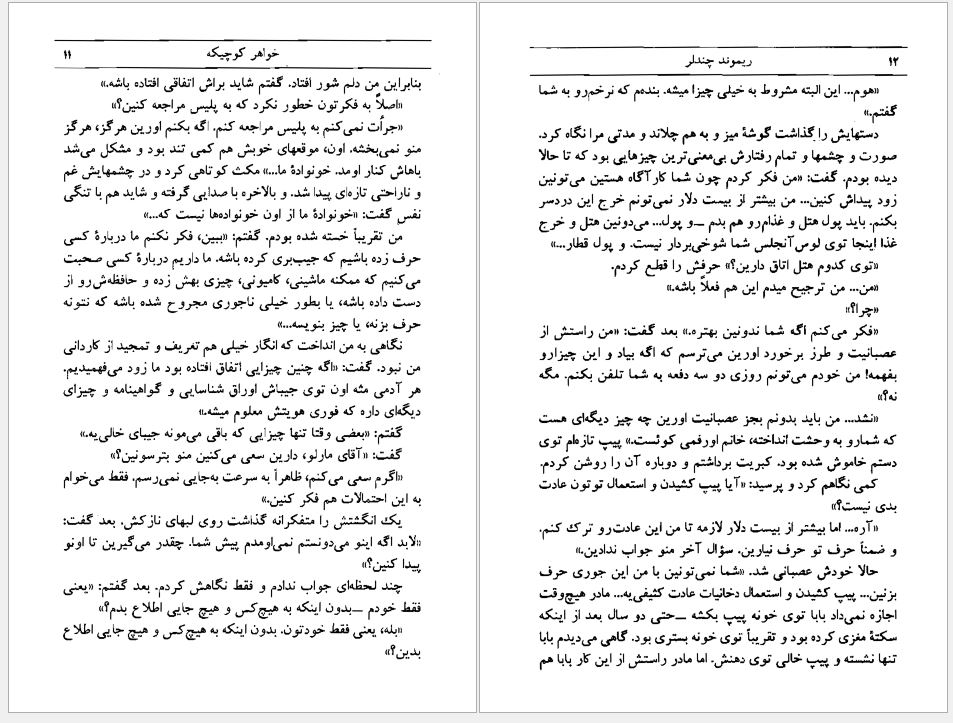 خواهر کوچیکه ۱۱
بنابراین من دلم شور افتاد. گفتم شاید براش اتفاقی افتاده باشه.»
«اصلاً به فکرتون خطور نکرد که به پلیس مراجعه کنین؟»
«جرأت نمی‌کنم به پلیس مراجعه کنم. اگه بکنم اورین هرگز، هرگز
منو نمی‌بخشه. اون، موقعهای خوبش هم کمی تند بود و مشکل می‌شد
باهاش کنار اومد. خونوادهٔ ما...» مکث کوتاهی کرد و در چشمهایش غم
و ناراحتی تازه‌ای پیدا شد. و بالاخره با صدایی گرفته و شاید هم با تنگی
نفس گفت: «خونوادهٔ ما از اون خونواده‌ها نیست که...»
من تقریباً خسته شده بودم. گفتم: «ببین، فکر نکنم ما دربارهٔ کسی
حرف زده باشیم که جیب‌بری کرده باشه. ما داریم دربارهٔ کسی صحبت
می‌کنیم که ممکنه ماشینی، کامیونی، چیزی بهش زده و حافظه‌ش‌رو از
دست داده باشه، یا بطور خیلی ناجوری مجروح شده باشه که نتونه
حرف بزنه، یا چیز بنویسه...»
نگاهی به من انداخت که انگار خیلی هم تعریف و تمجید از کاردانی
من نبود. گفت: «اگه چنین چیزایی اتفاق افتاده بود ما زود می‌فهمیدیم.
هر آدمی مثه اون توی جیباش اوراق شناسایی و گواهینامه و چیزای
دیگه‌ای داره که فوری هویتش معلوم میشه.»
گفتم: «بعضی وقتا تنها چیزایی که باقی می‌مونه جیبای خالی‌یه.»
گفت: «آقای مارلو، دارین سعی می‌کنین منو بترسونین؟»
«اگرم سعی می‌کنم، ظاهراً به سرعت به‌جایی نمی‌رسم. فقط می‌خوام
به این احتمالات هم فکر کنین.»
یک انگشتش را متفکرانه گذاشت روی لبهای نازکش. بعد گفت:
«لابد اگه اینو می‌دونستم نمی‌اومدم پیش شما. چقدر می‌گیرین تا اونو
پیدا کنین؟»
چند لحظه‌ای جواب ندادم و فقط نگاهش کردم. بعد گفتم: «یعنی
فقط خودم ــ بدون اینکه به هیچ‌کس و هیچ جایی اطلاع بدم؟»
«بله، یعنی فقط خودتون. بدون اینکه به هیچ‌کس و هیچ جایی اطلاع
بدین؟»
ریموند چندلر ۱۲
«هوم... این البته مشروط به خیلی چیزا میشه. بنده‌م که نرخم‌رو به شما
گفتم.»
دستهایش را گذاشت گوشهٔ میز و به هم چلاند و مدتی مرا نگاه کرد.
صورت و چشمها و تمام رفتارش بی‌معنی‌ترین چیزهایی بود که تا حالا
دیده بودم. گفت: «من فکر کردم چون شما کارآگاه هستین می‌تونین
زود پیداش کنین... من بیشتر از بیست دلار نمی‌تونم خرج این دردسر
بکنم. باید پول هتل و غذام‌رو هم بدم ــ و پول... می‌دونین هتل و خرج
غذا اینجا توی لوس‌آنجلس شما شوخی‌بردار نیست. و پول قطار...»
«توی کدوم هتل اتاق دارین؟» حرفش را قطع کردم.
«من... من ترجیح میدم این هم فعلاً باشه.»
«چرا؟»
«فکر می‌کنم اگه شما ندونین بهتره.» بعد گفت: «من راستش از
عصبانیت و طرز برخورد اورین می‌ترسم که اگه بیاد و این چیزارو
بفهمه! من خودم می‌تونم روزی دو سه دفعه به شما تلفن بکنم. مگه
نه؟»
«نشد... من باید بدونم بجز عصبانیت اورین چه چیز دیگه‌ای هست
که شمارو به وحشت انداخته، خانم اورفمی کوئست.» پیپ تازه‌ام توی
دستم خاموش شده بود. کبریت برداشتم و دوباره آن را روشن کردم.
کمی نگاهم کرد و پرسید: «آیا پیپ کشیدن و استعمال توتون عادت
بدی نیست؟»
«آره... اما بیشتر از بیست دلار لازمه تا من این عادت‌رو ترک کنم.
و ضمناً حرف تو حرف نیارین. سؤال آخر منو جواب ندادین.»
حالا خودش عصبانی شد. «شما نمی‌تونین با من این جوری حرف
بزنین... پیپ کشیدن و استعمال دخانیات عادت کثیفی‌یه... مادر هیچ‌وقت
اجازه نمی‌داد بابا توی خونه پیپ بکشه ــ حتی دو سال بعد از اینکه
سکتهٔ مغزی کرده بود و تقریباً توی خونه بستری بود. گاهی می‌دیدم بابا
تنها نشسته و پیپ خالی توی دهنش. اما مادر راستش از این کار بابا هم